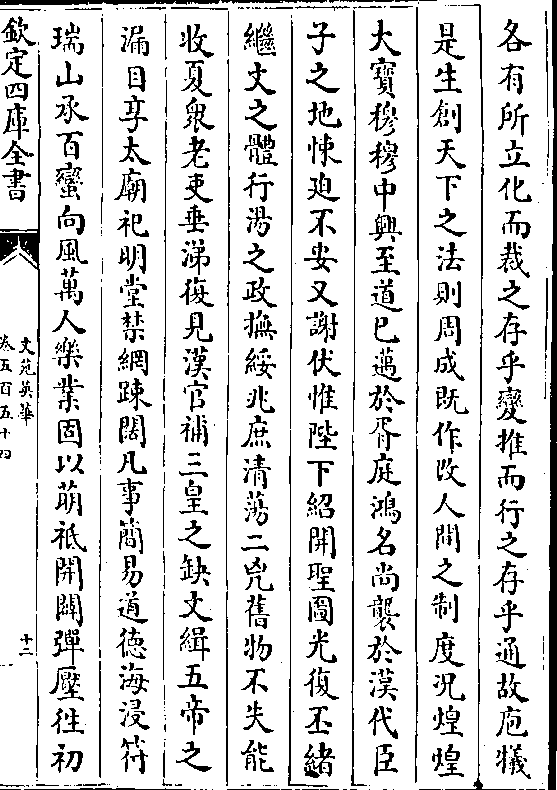 各有所立化而裁之存乎變推而行之存乎通故庖犠
是生創天下之法則周成既作改人間之制度況煌煌
大寶穆穆中興至道已邁於胥庭鴻名尚襲於漢代臣
子之地悚迫不安又謝伏惟陛下紹開聖圖光復丕緒
繼文之體行湯之政撫綏兆庶清蕩二兇舊物不失能
收夏衆老吏垂涕復見漢官補三皇之缺文緝五帝之
漏目享太廟祀明堂禁網踈闊凡事簡易道德海浸符
瑞山承百蠻向風萬人樂業固以萌祗開闢彈壓徃初
欽定四庫全書
文苑英華
卷五百五十四
十二